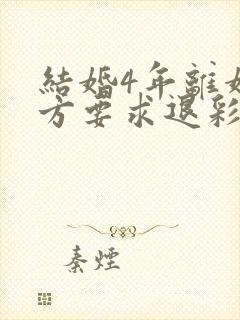 結婚4年離婚
方要求退彩
秦煙